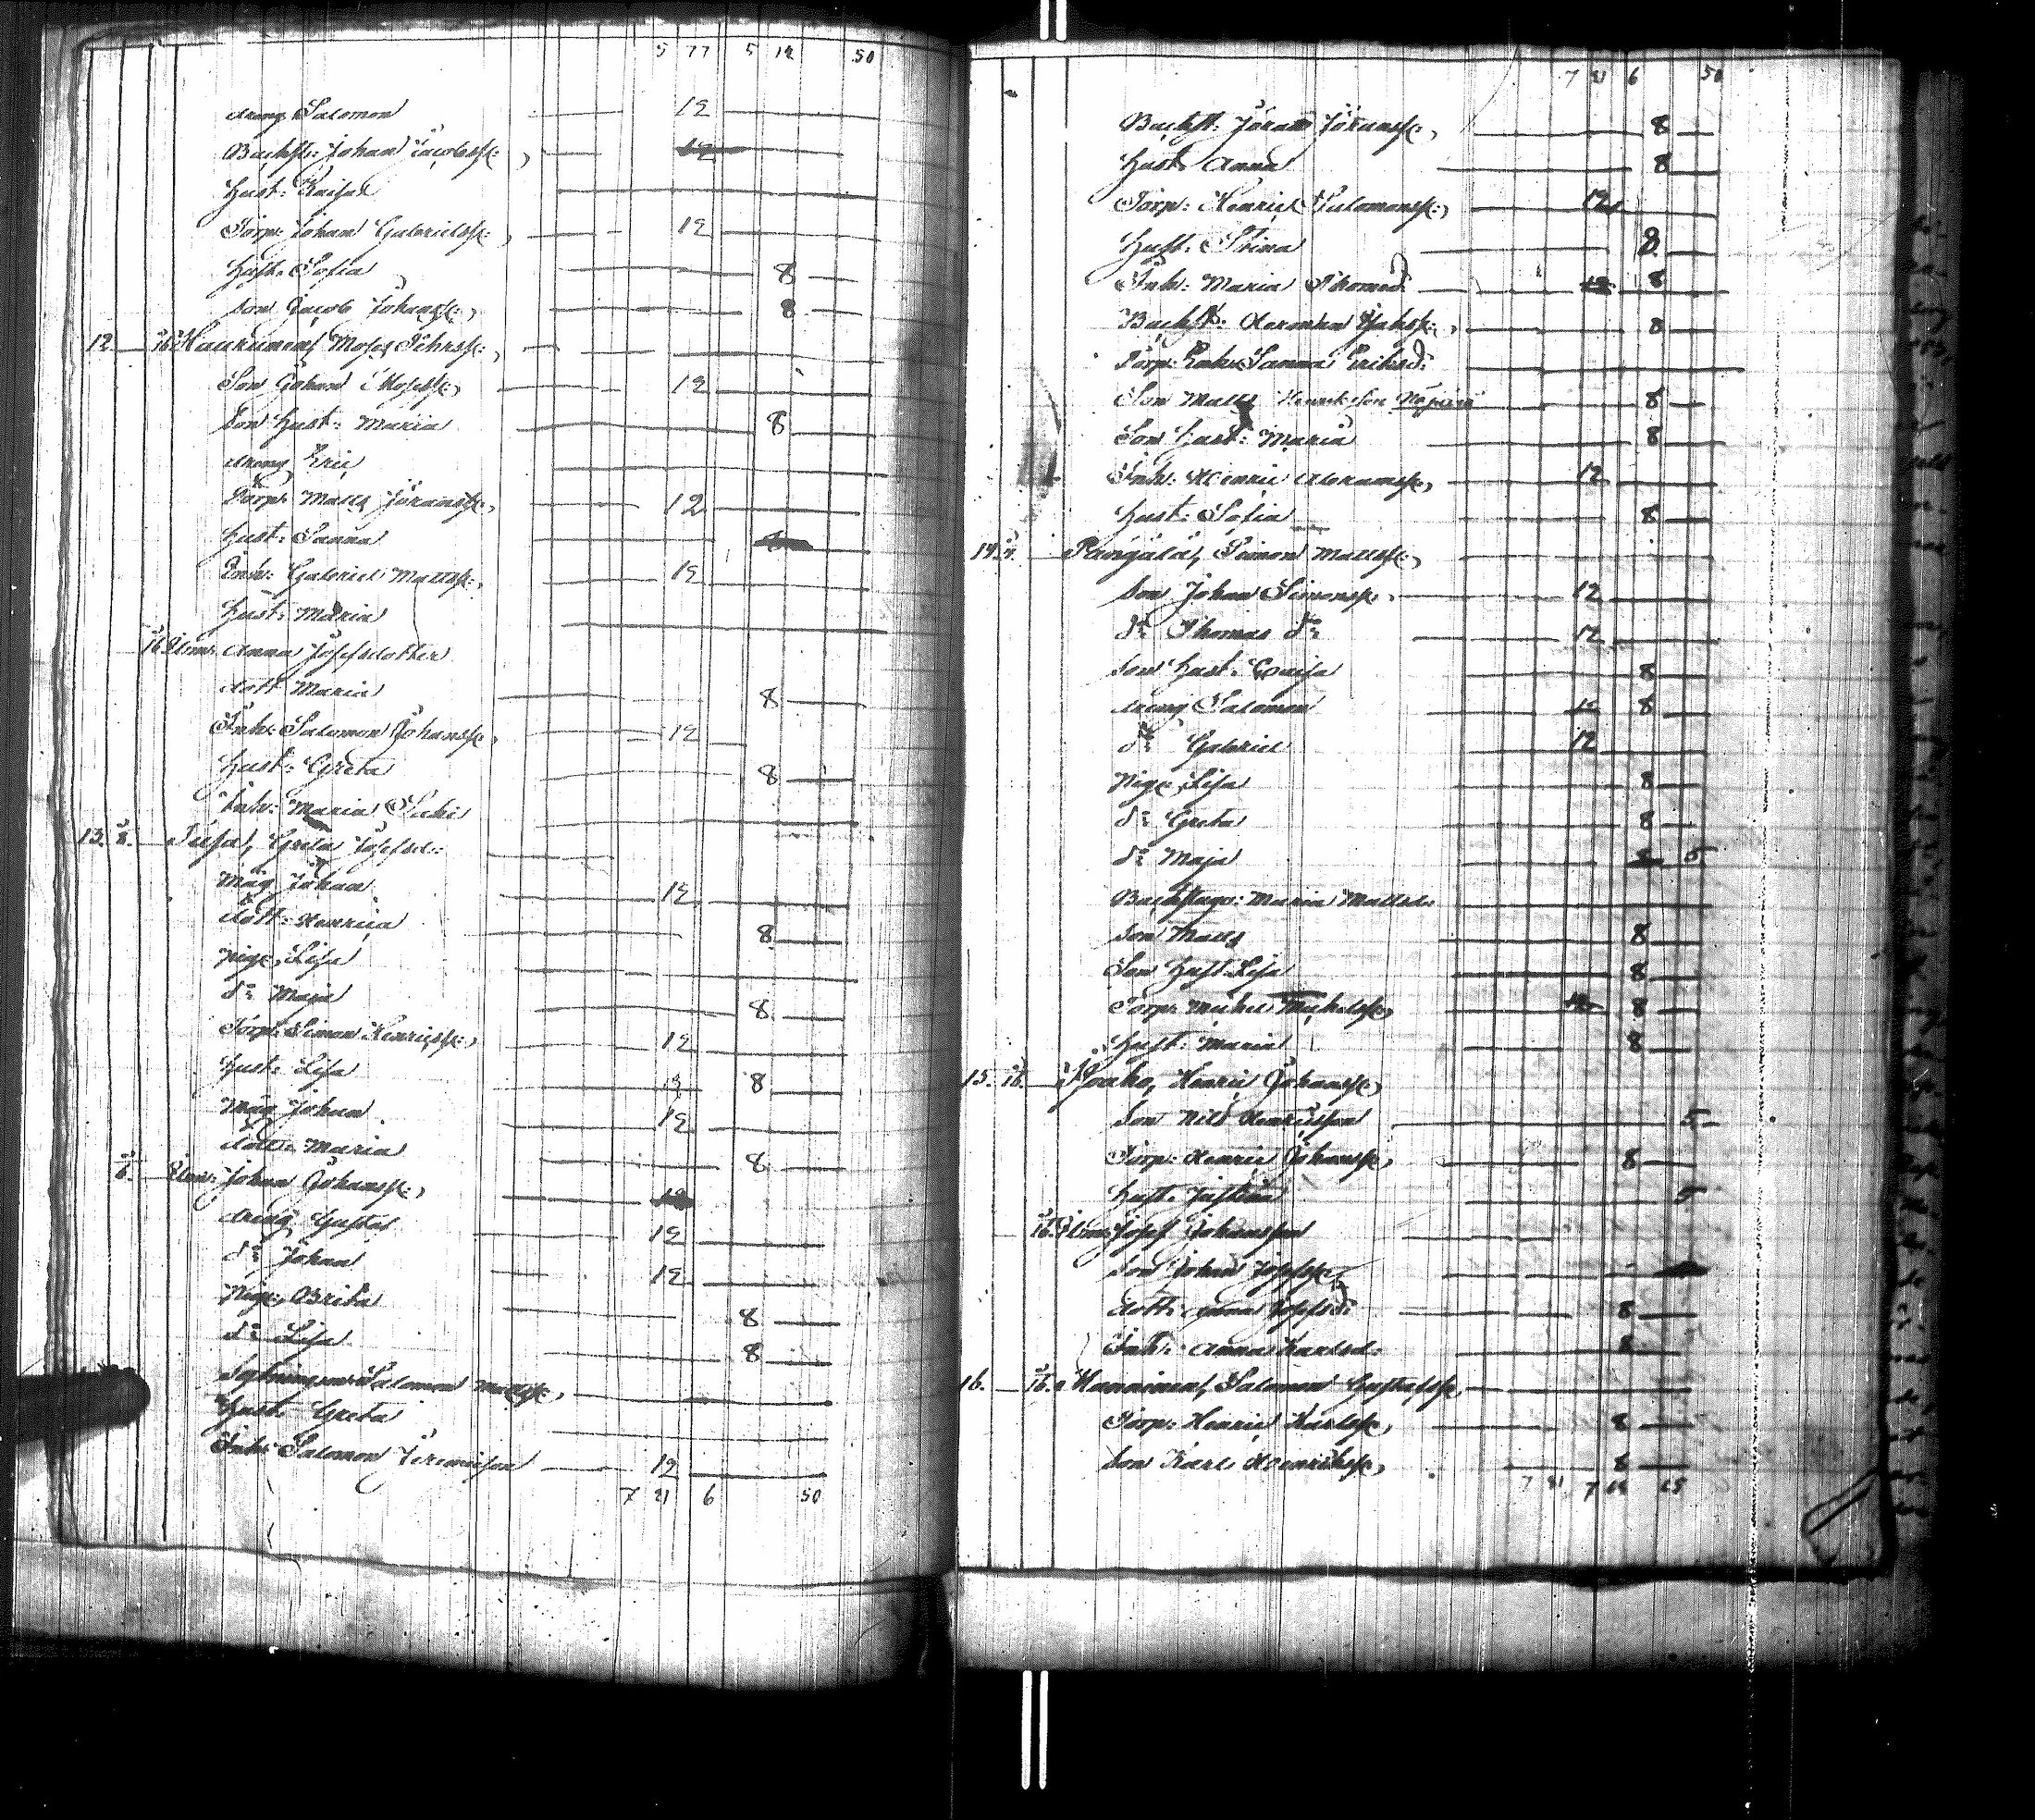 5 77 5 12 50
dräng Salomon 12
Backst: Johan Jacobss: 12
Hust: Kaisa
Torp: Johan Gabrielss: 12
Hust: Sofia 8
Son Jacob Johanss: 8
12 Moses
Son Johan Mosess: 12
Son Hust: Maria 8
dräng Eric
Torp: Matts Jöranss: 12
Hust: Sanna
Inh: Gabriel Mattss: 12
Hust: Maria
Anna Josefsdotter
dott: Maria 8
Inh: Salomon Johanss: 12
Hust: Greta 8
Inh: Maria
13. Greta Josefsd:
Måg Johan 12
dott: Henrica 8
Piga Lisa
d:o Maja 8
Torp: Simon Henricss: 12
Hust: Lisa 8
Måg Johan 12
dott: Maria 8
Johan Johanss: 12
dräng Gustaf 12
d:o Johan 12
Piga Brita 8
d:o Lisa 8
Salomon Mattss:
Hust: Greta
Inh: Salomon Jeremiasson 12
7 21 6 50
7 21 6 50
Backst: Jöran Jöranss: 8
Hust: Anna 8
Torp: Henric Salomonss: 12
Hust: Stina 8
Inh: Maria Thomasd: 12 8
Backst: 8
Torp: Enka Sanna Eriksd:
Son Matts Henriksson 8
Son Hust: Maria 8
Inh: Henric Abramss: 12
Hust: Sofia 8
14. Simon Mattss:
Son Johan Simonss: 12
d:o Thomas d:o 12
Son Hust: Caisa 8
dräng Salomon 12 8
d:o Gabriel 12
Piga Lisa 8
d:o Greta 8
d:o Maja 8 5
Maria Mattsd:
Son Matts 8
Son Hust: Lisa 8
Torp: Michel Michelss: 12 8
Hust: Maria 8
15. 16. Henric Johanss:
Son Nils Henricsson 5
Torp: Henric Johanss: 8
Hust: Justina 5
Josef Johansson
Son Johan Josefss:
dott: Anna Josefsd: 8
Inh: Anna Karlsd: 8
16. Salomon Gustafss:
Torp: Henric Karlss: 8
Son Karl Henrikss: 8
7 21 7 25